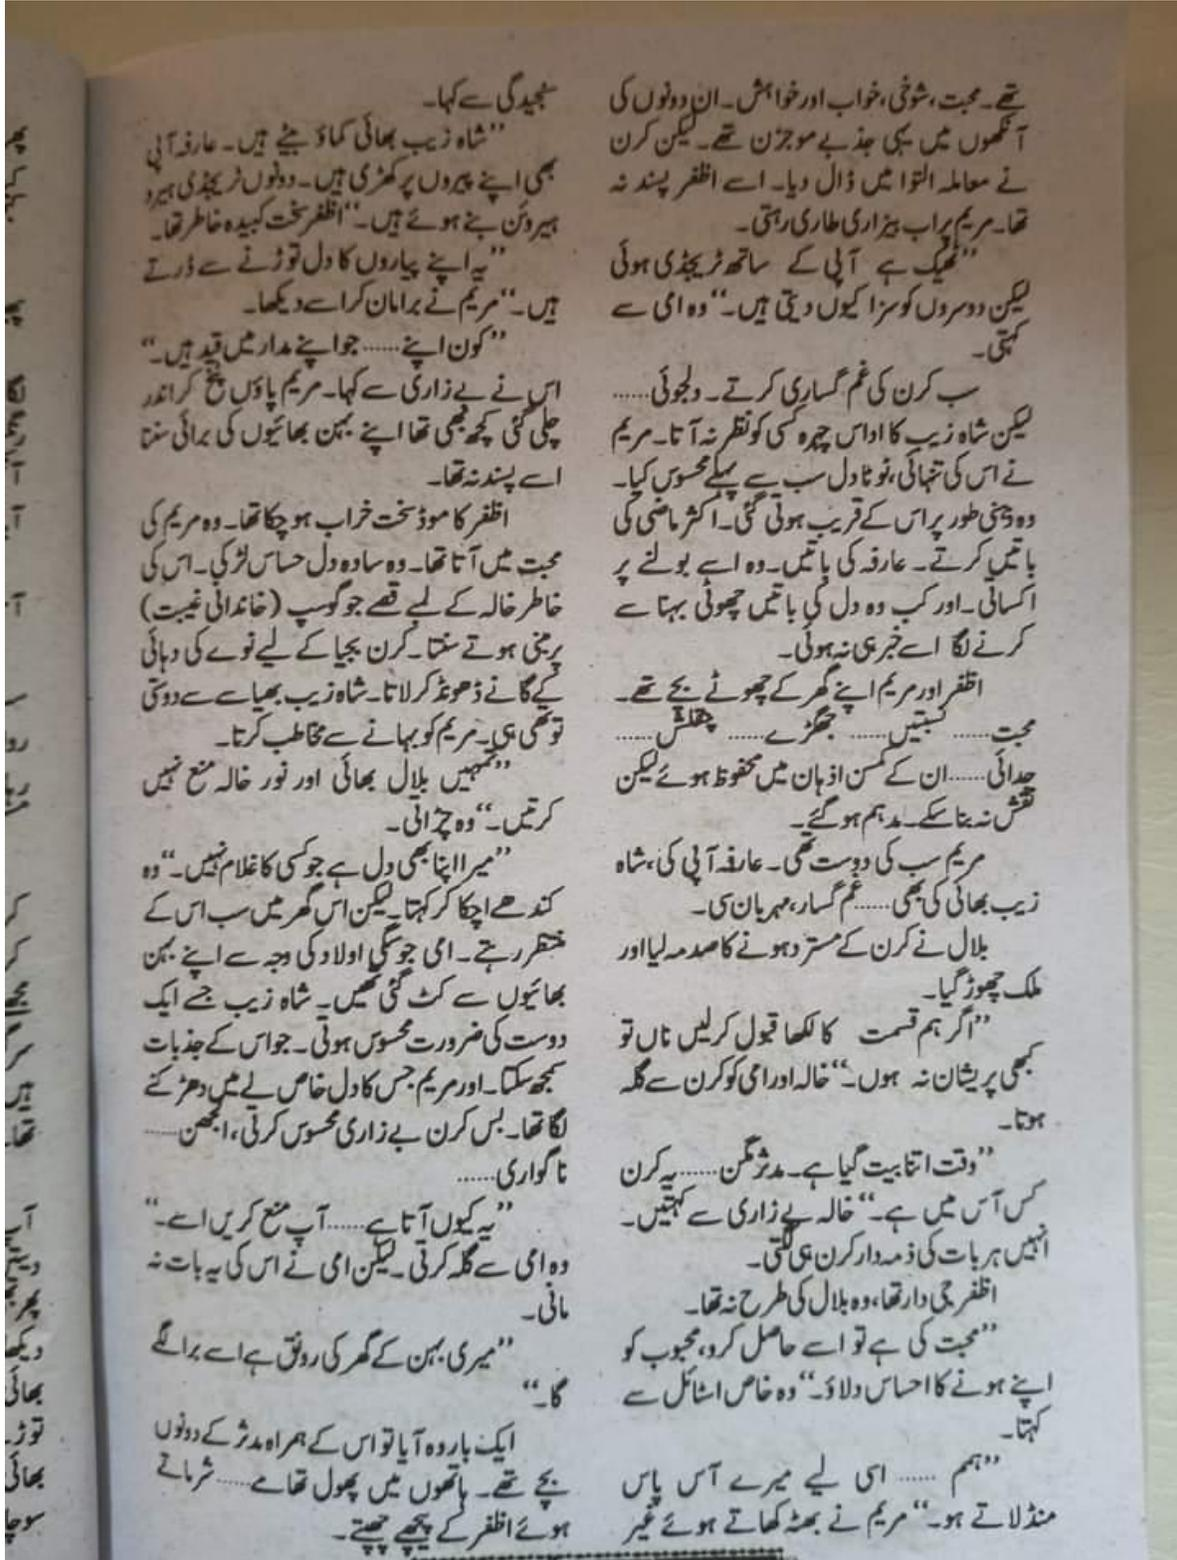 تھے۔ محبت، شوخی، خواب اور خواہش۔ ان دونوں کی
آنکھوں میں یہی جذبے موجزن تھے۔ لیکن کرن
نے معاملہ التوا میں ڈال دیا۔ اسے اظفر پسند نہ
تھا۔ مریم پر اب بیزاری طاری رہتی۔
”ٹھیک ہے آپی کے ساتھ ٹریجڈی ہوئی
لیکن دوسروں کو سزا کیوں دیتی ہیں۔“ وہ امی سے
کہتی۔
سب کرن کی غم گساری کرتے۔ دلجوئی......
لیکن شاہ زیب کا اداس چہرہ کسی کو نظر نہ آتا۔ مریم
نے اس کی تنہائی، ٹوٹا دل سب سے پہلے محسوس کیا۔
وہ ذہنی طور پر اس کے قریب ہوتی گئی۔ اکثر ماضی کی
باتیں کرتے۔ عارفہ کی باتیں۔ وہ اسے بولنے پر
اکساتی۔ اور کب وہ دل کی باتیں چھوٹی بہنا سے
کرنے لگا اسے خبر ہی نہ ہوئی۔
اظفر اور مریم اپنے گھر کے چھوٹے بچے تھے۔
محبت...... نسبتیں...... جھگڑے...... چپقلش......
جدائی...... ان کے کمسن اذہان میں محفوظ ہوئے لیکن
نقش نہ بنا سکے۔ مدہم ہو گئے۔
مریم سب کی دوست تھی۔ عارفہ آپی کی، شاہ
زیب بھائی کی بھی...... غم گسار، مہربان سی۔
بلال نے کرن کے مسترد ہونے کا صدمہ لیا اور
ملک چھوڑ گیا۔
”اگر ہم قسمت کا لکھا قبول کر لیں ناں تو
کبھی پریشان نہ ہوں۔“ خالہ اور امی کو کرن سے گلہ
ہوتا۔
”وقت اتنا بیت گیا ہے۔ مدثر مگن...... یہ کرن
کس آس میں ہے۔“ خالہ بے زاری سے کہتیں۔
انہیں ہر بات کی ذمہ دار کرن ہی لگتی۔
اظفر جی دار تھا، وہ بلال کی طرح نہ تھا۔
”محبت کی ہے تو اسے حاصل کرو، محبوب کو
اپنے ہونے کا احساس دلاؤ۔“ وہ خاص اسٹائل سے
کہتا۔
”ہمم ...... اسی لیے میرے آس پاس
منڈلاتے ہو۔“ مریم نے بھٹہ کھاتے ہوئے غیر
سنجیدگی سے کہا۔
”شاہ زیب بھائی کماؤ بیٹے ہیں۔ عارفہ آپی
بھی اپنے پیروں پر کھڑی ہیں۔ دونوں ٹریجڈی ہیرو
ہیروئن بنے ہوئے ہیں۔“ اظفر سخت کبیدہ خاطر تھا۔
”یہ اپنے پیاروں کا دل توڑنے سے ڈرتے
ہیں۔“ مریم نے برا مان کر اسے دیکھا۔
”کون اپنے...... جو اپنے مدار میں قید ہیں۔“
اس نے بے زاری سے کہا۔ مریم پاؤں پٹخ کر اندر
چلی گئی کچھ بھی تھا اپنے بہن بھائیوں کی برائی سننا
اسے پسند نہ تھا۔
اظفر کا موڈ سخت خراب ہو چکا تھا۔ وہ مریم کی
محبت میں آتا تھا۔ وہ سادہ دل حساس لڑکی۔ اس کی
خاطر خالہ کے لمبے قصے جو گوسپ (خاندانی غیبت)
پر مبنی ہوتے سنتا۔ کرن بجیا کے لیے نوے کی دہائی
کے گانے ڈھونڈ کر لاتا۔ شاہ زیب بھیا سے سے دوستی
تو تھی ہی۔ مریم کو بہانے سے مخاطب کرتا۔
”تمہیں بلال بھائی اور نور خالہ منع نہیں
کرتیں۔“ وہ چڑاتی۔
”میرا اپنا بھی دل ہے جو کسی کا غلام نہیں۔“ وہ
کندھے اچکا کر کہتا۔ لیکن اس گھر میں سب اس کے
منتظر رہتے۔ امی جو سگی اولاد کی وجہ سے اپنے بہن
بھائیوں سے کٹ گئی تھیں۔ شاہ زیب جسے ایک
دوست کی ضرورت محسوس ہوتی۔ جو اس کے جذبات
سمجھ سکتا۔ اور مریم جس کا دل خاص لے میں دھڑکنے
لگا تھا۔ بس کرن بے زاری محسوس کرتی، الجھن......
ناگواری......
”یہ کیوں آتا ہے...... آپ منع کریں اسے۔“
وہ امی سے گلہ کرتی۔ لیکن امی نے اس کی یہ بات نہ
مانی۔
”میری بہن کے گھر کی رونق ہے اسے برا لگے
گا۔“
ایک بار وہ آیا تو اس کے ہمراہ مدثر کے دونوں
بچے تھے۔ ہاتھوں میں پھول تھامے...... شرماتے
ہوئے اظفر کے پیچھے چھپتے۔